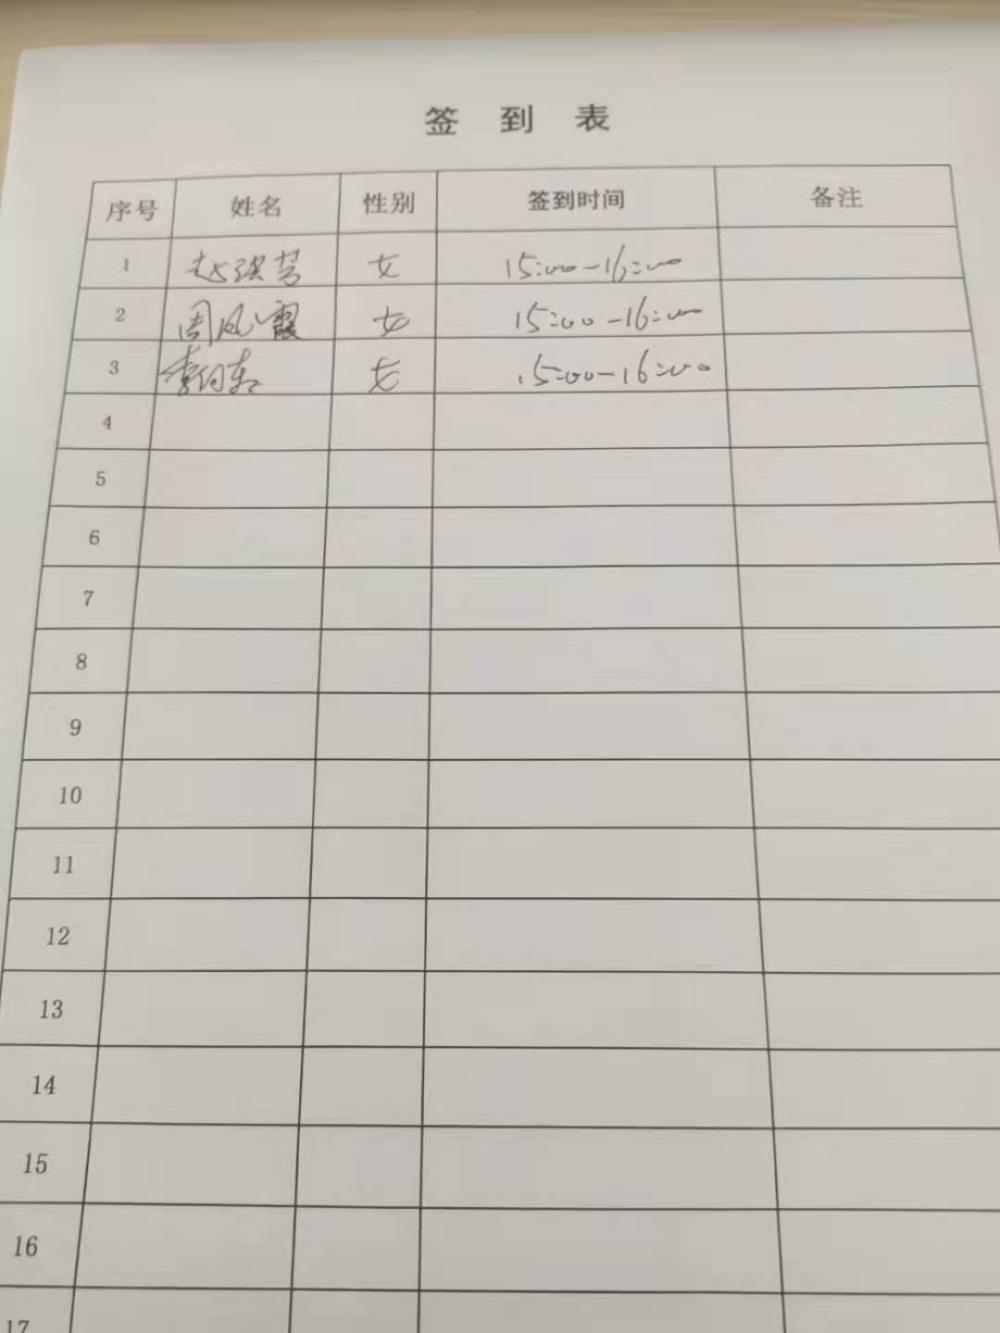 签 到 表
序号 姓名 性别 签到时间 备注
1 赵 女 15:00-16:00
2 周凤霞 女 15:00-16:00
3 李 女 15:00-16:00
4
5
6
7
8
9
10
11
12
13
14
15
16
17